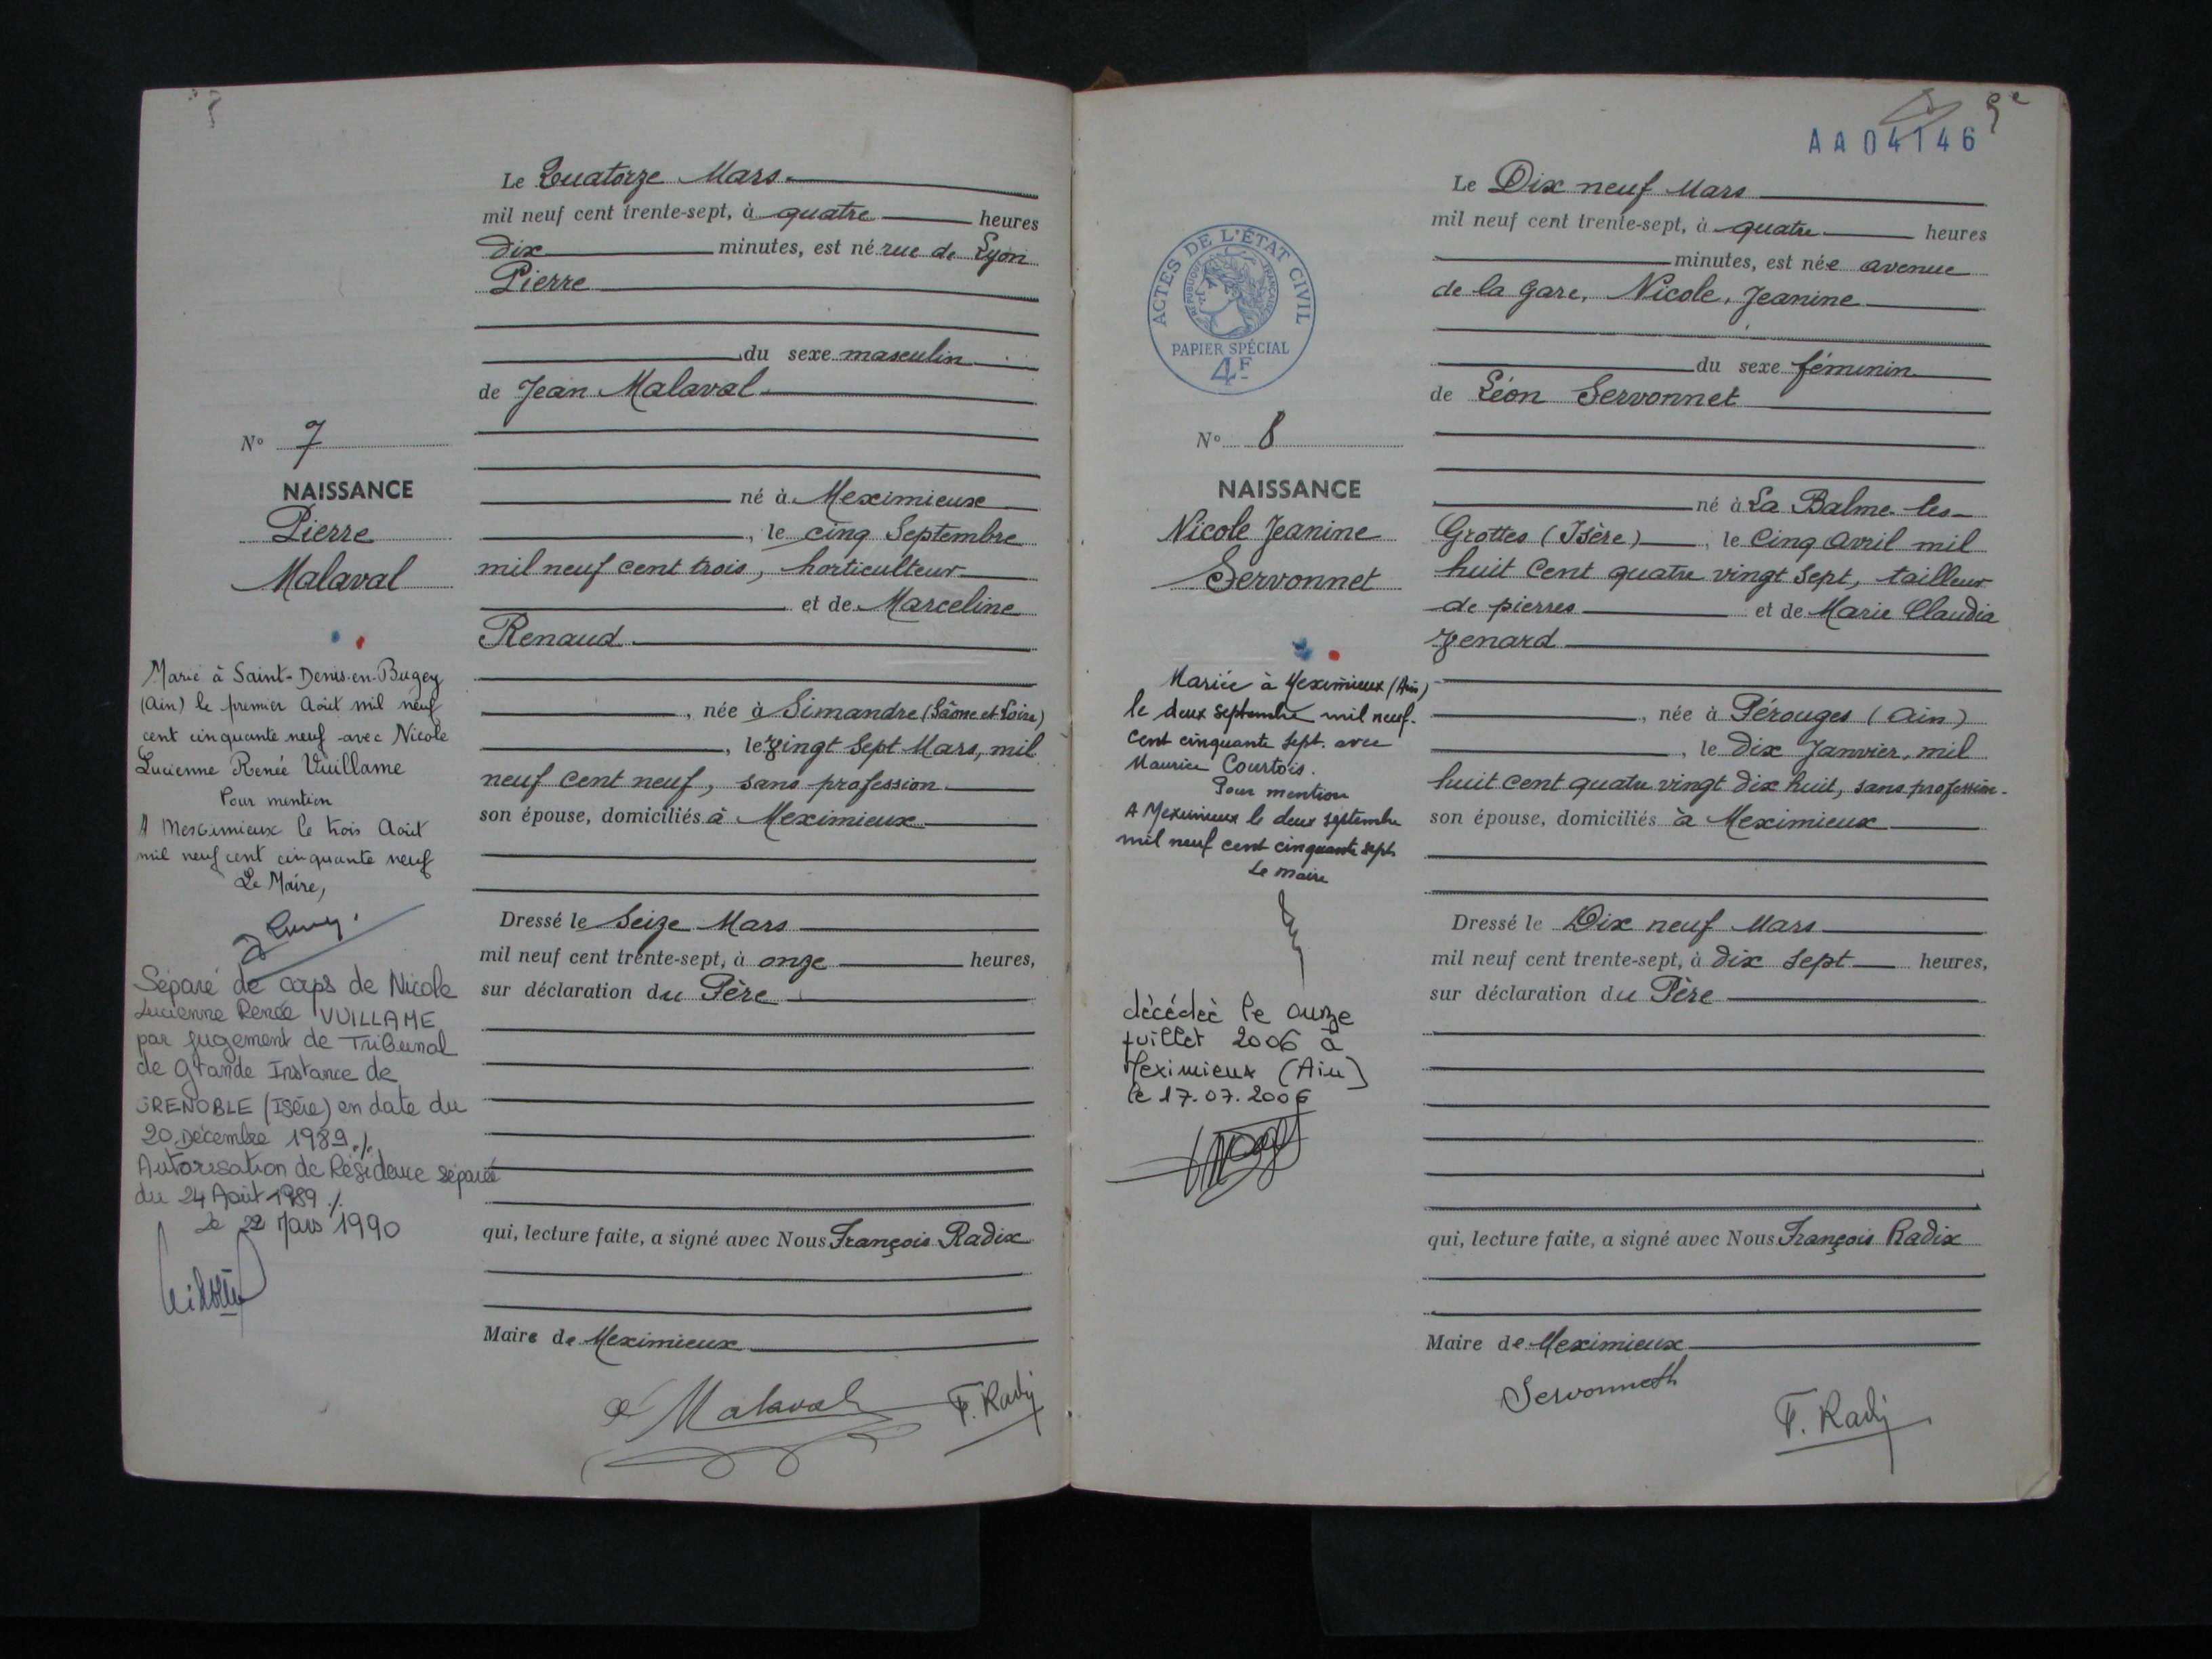 Le Quatorze Mars
mil neuf cent trente-sept, à quatre heures
dix minutes, est né rue de Lyon
Pierre
du sexe masculin
de Jean Malaval
né à Meximieux
, le cinq Septembre
mil neuf cent trois, horticulteur
et de Marceline
Renaud
, née à Simandre (Saône et Loire)
, le Vingt Sept Mars, mil
neuf cent neuf, sans profession
son épouse, domiciliés à Meximieux
Dressé le Seize Mars
mil neuf cent trente-sept, à onze heures,
sur déclaration du Père
qui, lecture faite, a signé avec Nous François Radix
Maire de Meximieux
Malaval
F. Radix
No 7
NAISSANCE
Pierre
Malaval
Marié à Saint-Denis-en-Bugey
(Ain) le premier Août mil neuf
cent cinquante neuf avec Nicole
Lucienne Renée Vuillame
Pour mention
A Meximieux le trois Août
mil neuf cent cinquante neuf
Le Maire,
Séparé de corps de Nicole
Lucienne Renée VUILLAME
par jugement de Tribunal
de Grande Instance de
GRENOBLE (Isère) en date du
20 Décembre 1989 ./.
Autorisation de Résidence séparée
du 24 Août 1989 ./.
Le 22 Mars 1990
AA04146
Le Dix neuf Mars
mil neuf cent trente-sept, à quatre heures
minutes, est née avenue
de la Gare, Nicole, Jeanine
du sexe féminin
de Léon Servonnet
né à La Balme-les-
Grottes (Isère), le Cinq avril mil
huit Cent quatre vingt Sept, tailleur
de pierres et de Marie Claudia
Venard
, née à Pérouges (Ain)
, le Dix Janvier, mil
huit cent quatre vingt dix huit, sans profession
son épouse, domiciliés à Meximieux
Dressé le Dix neuf Mars
mil neuf cent trente-sept, à dix sept heures,
sur déclaration du Père
qui, lecture faite, a signé avec Nous François Radix
Maire de Meximieux
Servonnet
F. Radix
ACTES DE L'ÉTAT CIVIL
RÉPUBLIQUE FRANÇAISE
PAPIER SPÉCIAL
4F
No 8
NAISSANCE
Nicole Jeanine
Servonnet
Mariée à Meximieux (Ain)
le deux septembre mil neuf-
cent cinquante sept. avec
Maurice Courtois.
Pour mention
A Meximieux le deux septembre
mil neuf cent cinquante sept
Le maire
décédée le onze
juillet 2006 à
Meximieux (Ain)
le 17.07.2006